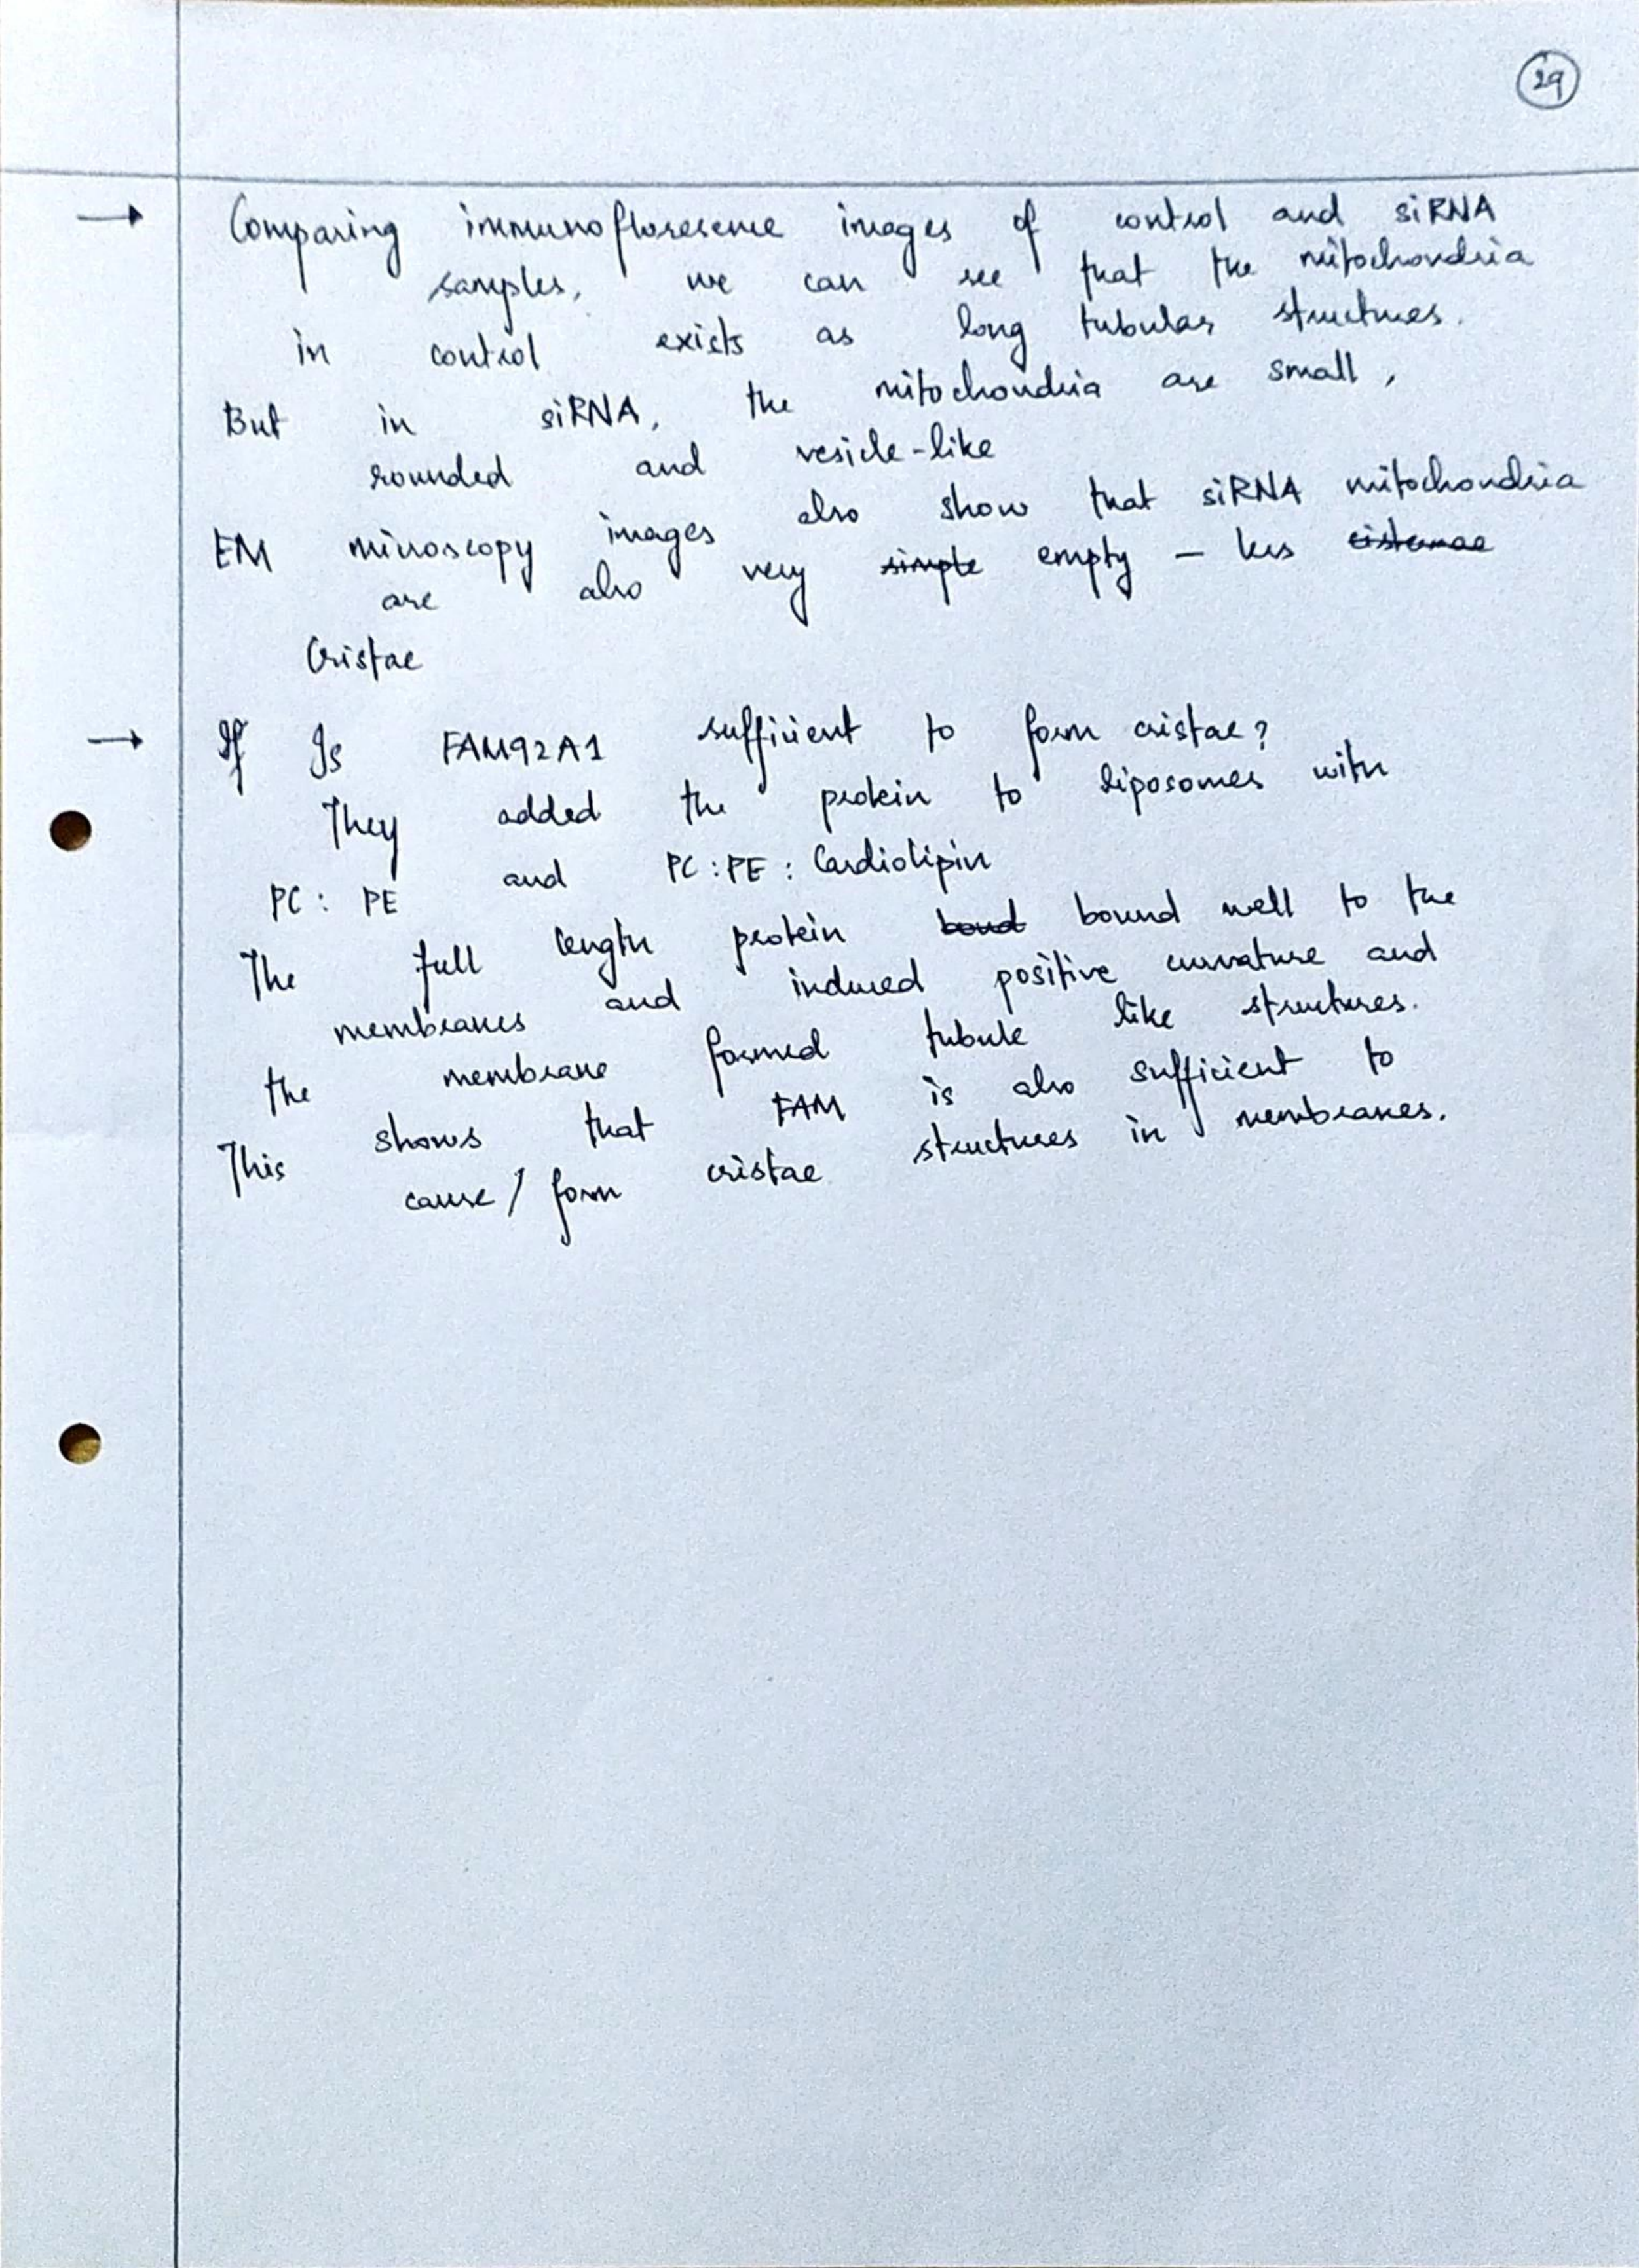 29
→ Comparing immunofloresence images of control and siRNA
samples, we can see that the mitochondria
in control exists as long tubular structures.
But in siRNA, the mitochondria are small,
rounded and vesicle-like
EM microscopy images also show that siRNA mitochondria
are also very simple empty - less cisternae
Cristae
→ If Is FAM92A1 sufficient to form cristae?
They added the protein to liposomes with
PC : PE and PC : PE : Cardiolipin
The full length protein boud bound well to the
membranes and induced positive curvature and
the membrane formed tubule like structures.
This shows that FAM is also sufficient to
cause / form cristae structures in membranes.